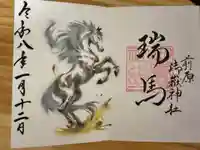 前原
御嶽神社
瑞馬
令和八年一月十二日